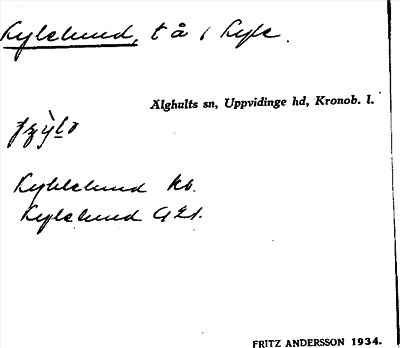 Kylelund, t å i Kyle.
Älghults sn, Uppvidinge hd, Kronob. l.
Kyhlelund kb.
Kylelund GEK.
FRITZ ANDERSSON 1934.